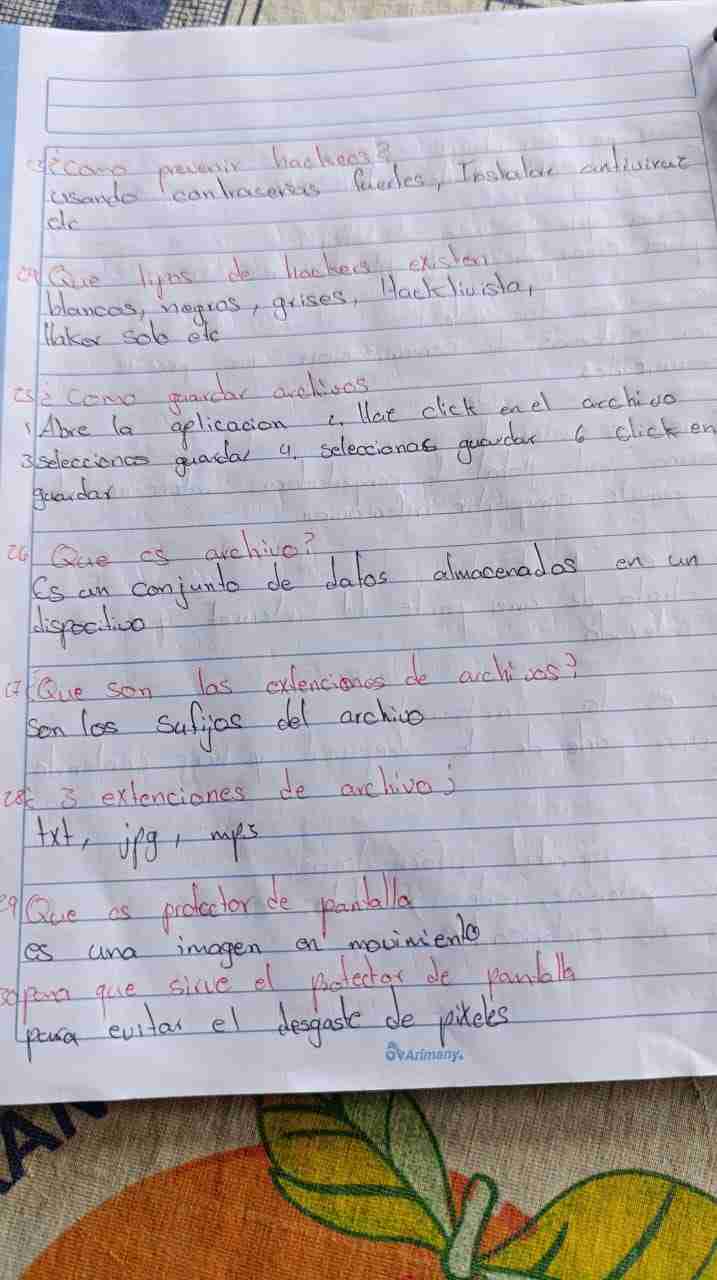 ¿Como prevenir hackeos?
usando contracerias fuertes, Instalar antivirut
etc
24 Que tipos de hackers existen
blancos, negros, grises, Hacktivista,
Haker sob etc
25 ¿Como guardar archivos
1 Abre la aplicacion 2. Haz click en el archivo
3 selecciones guardar 4. seleccionas guardar 6 click en
guardar
26 Que es archivo?
Es un conjunto de datos almacenados en un
dispocitivo
27 Que son las extenciones de archivos?
Son los sufijos del archivo
28 3 extenciones de archivo:
txt, jpg, mp3
29 Que es protector de pantalla
es una imagen en movimiento
30 para que sirve el protector de pantalla
para evitar el desgaste de pixeles
Arimany.